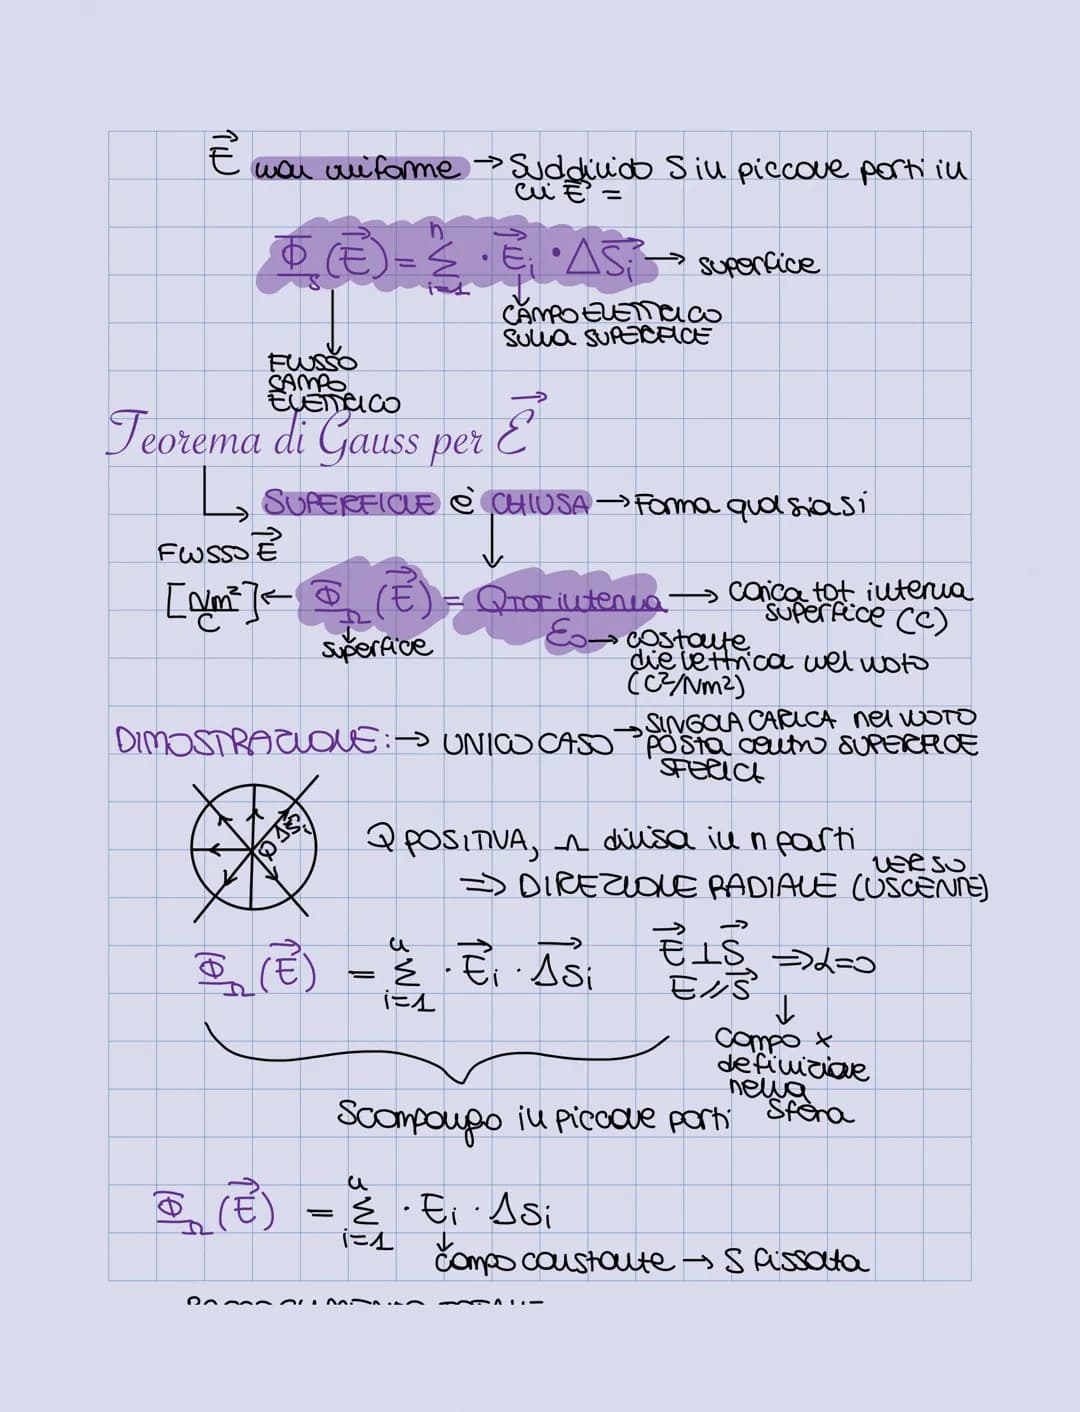 E⃗ non uniforme → Suddivido S in piccole parti in
cui E⃗ =
Φ_S (E⃗) = Σ_{i=1}^{n} · E⃗_i · ΔS⃗_i → superfice
CAMPO ELETTRICO
SULLA SUPERFICE
FLUSSO
CAMPO
ELETTRICO
Teorema di Gauss per E⃗
SUPERFICIE è CHIUSA → Forma qualsiasi
FLUSSO E⃗
[Nm²/C] ← Φ_Ω (E⃗) = Qtot interna / ε₀ → carica tot interna
superfice (C)
superfice
costante
dielettrica nel vuoto
(C²/Nm²)
DIMOSTRAZIONE: → UNICO CASO → SINGOLA CARICA nel VUOTO
posta centro SUPERFICE
SFERICA
Q ΔS⃗i
Q POSITIVA, Ω divisa in n parti
⇒ DIREZIONE RADIALE (VERSO
USCENTE)
Φ_Ω (E⃗) = Σ_{i=1}^{n} · E⃗_i · ΔS⃗_i
E⃗ ⊥ S⃗ ⇒ α=0
E // S⃗
Campo x
definizione
nella
Sfera
Scompongo in piccole parti
Φ_Ω (E⃗) = Σ_{i=1}^{n} · E_i · ΔS_i
Campo costante → S fissata